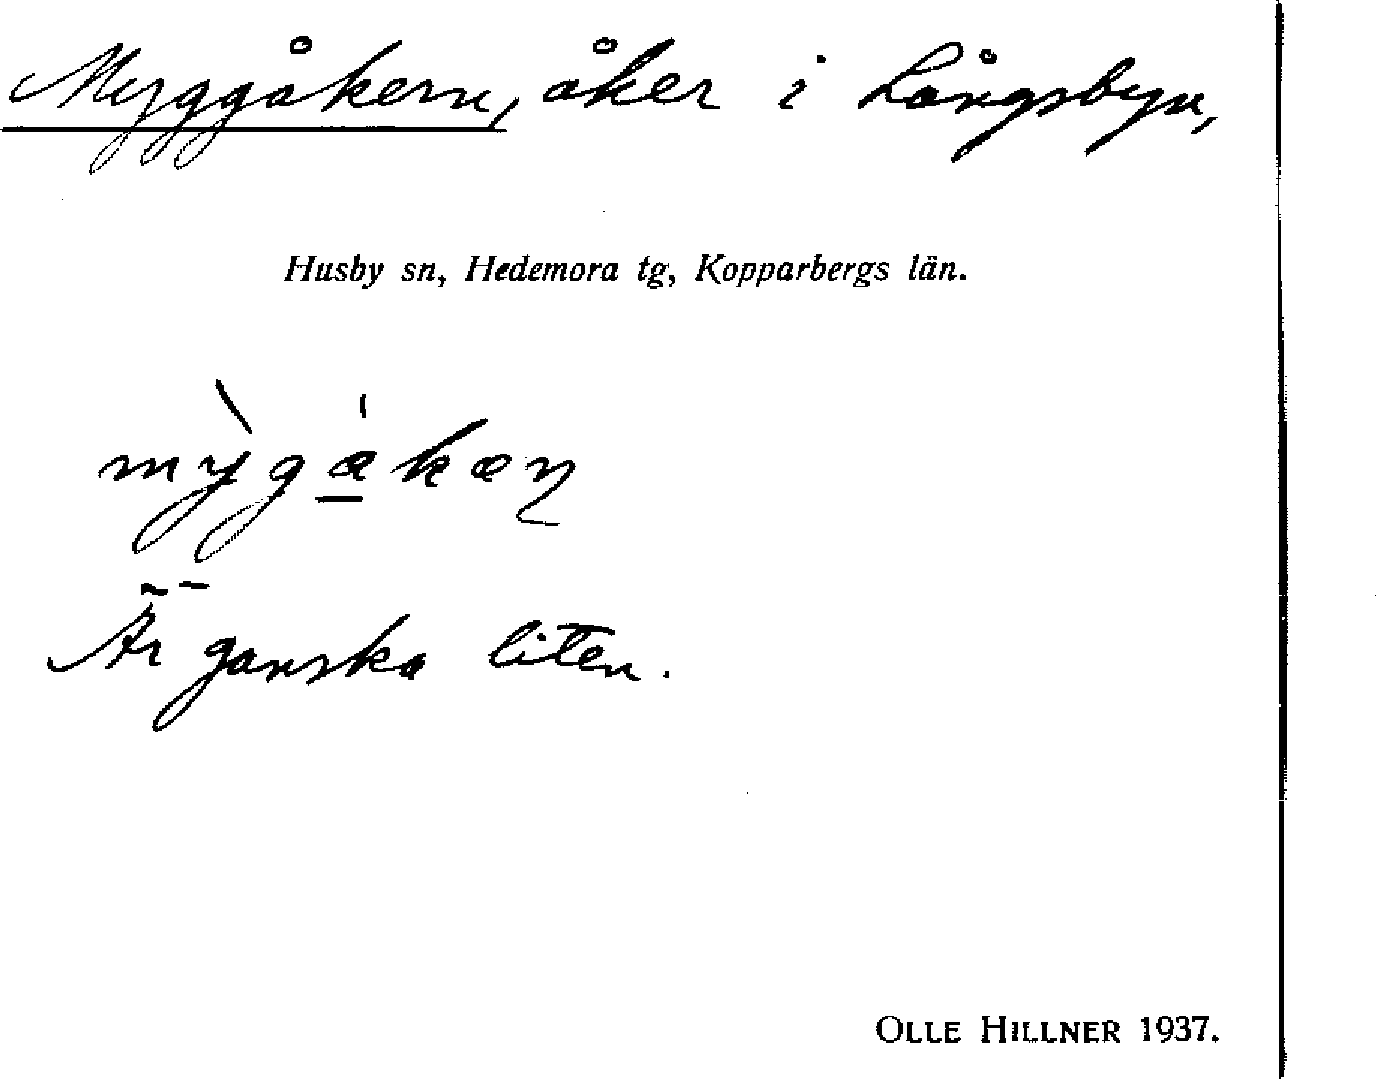 Myggåkern, åker i Långsbyn,
Husby sn, Hedemora tg, Kopparbergs län.
Är ganska liten.
OLLE HILLNER 1937.